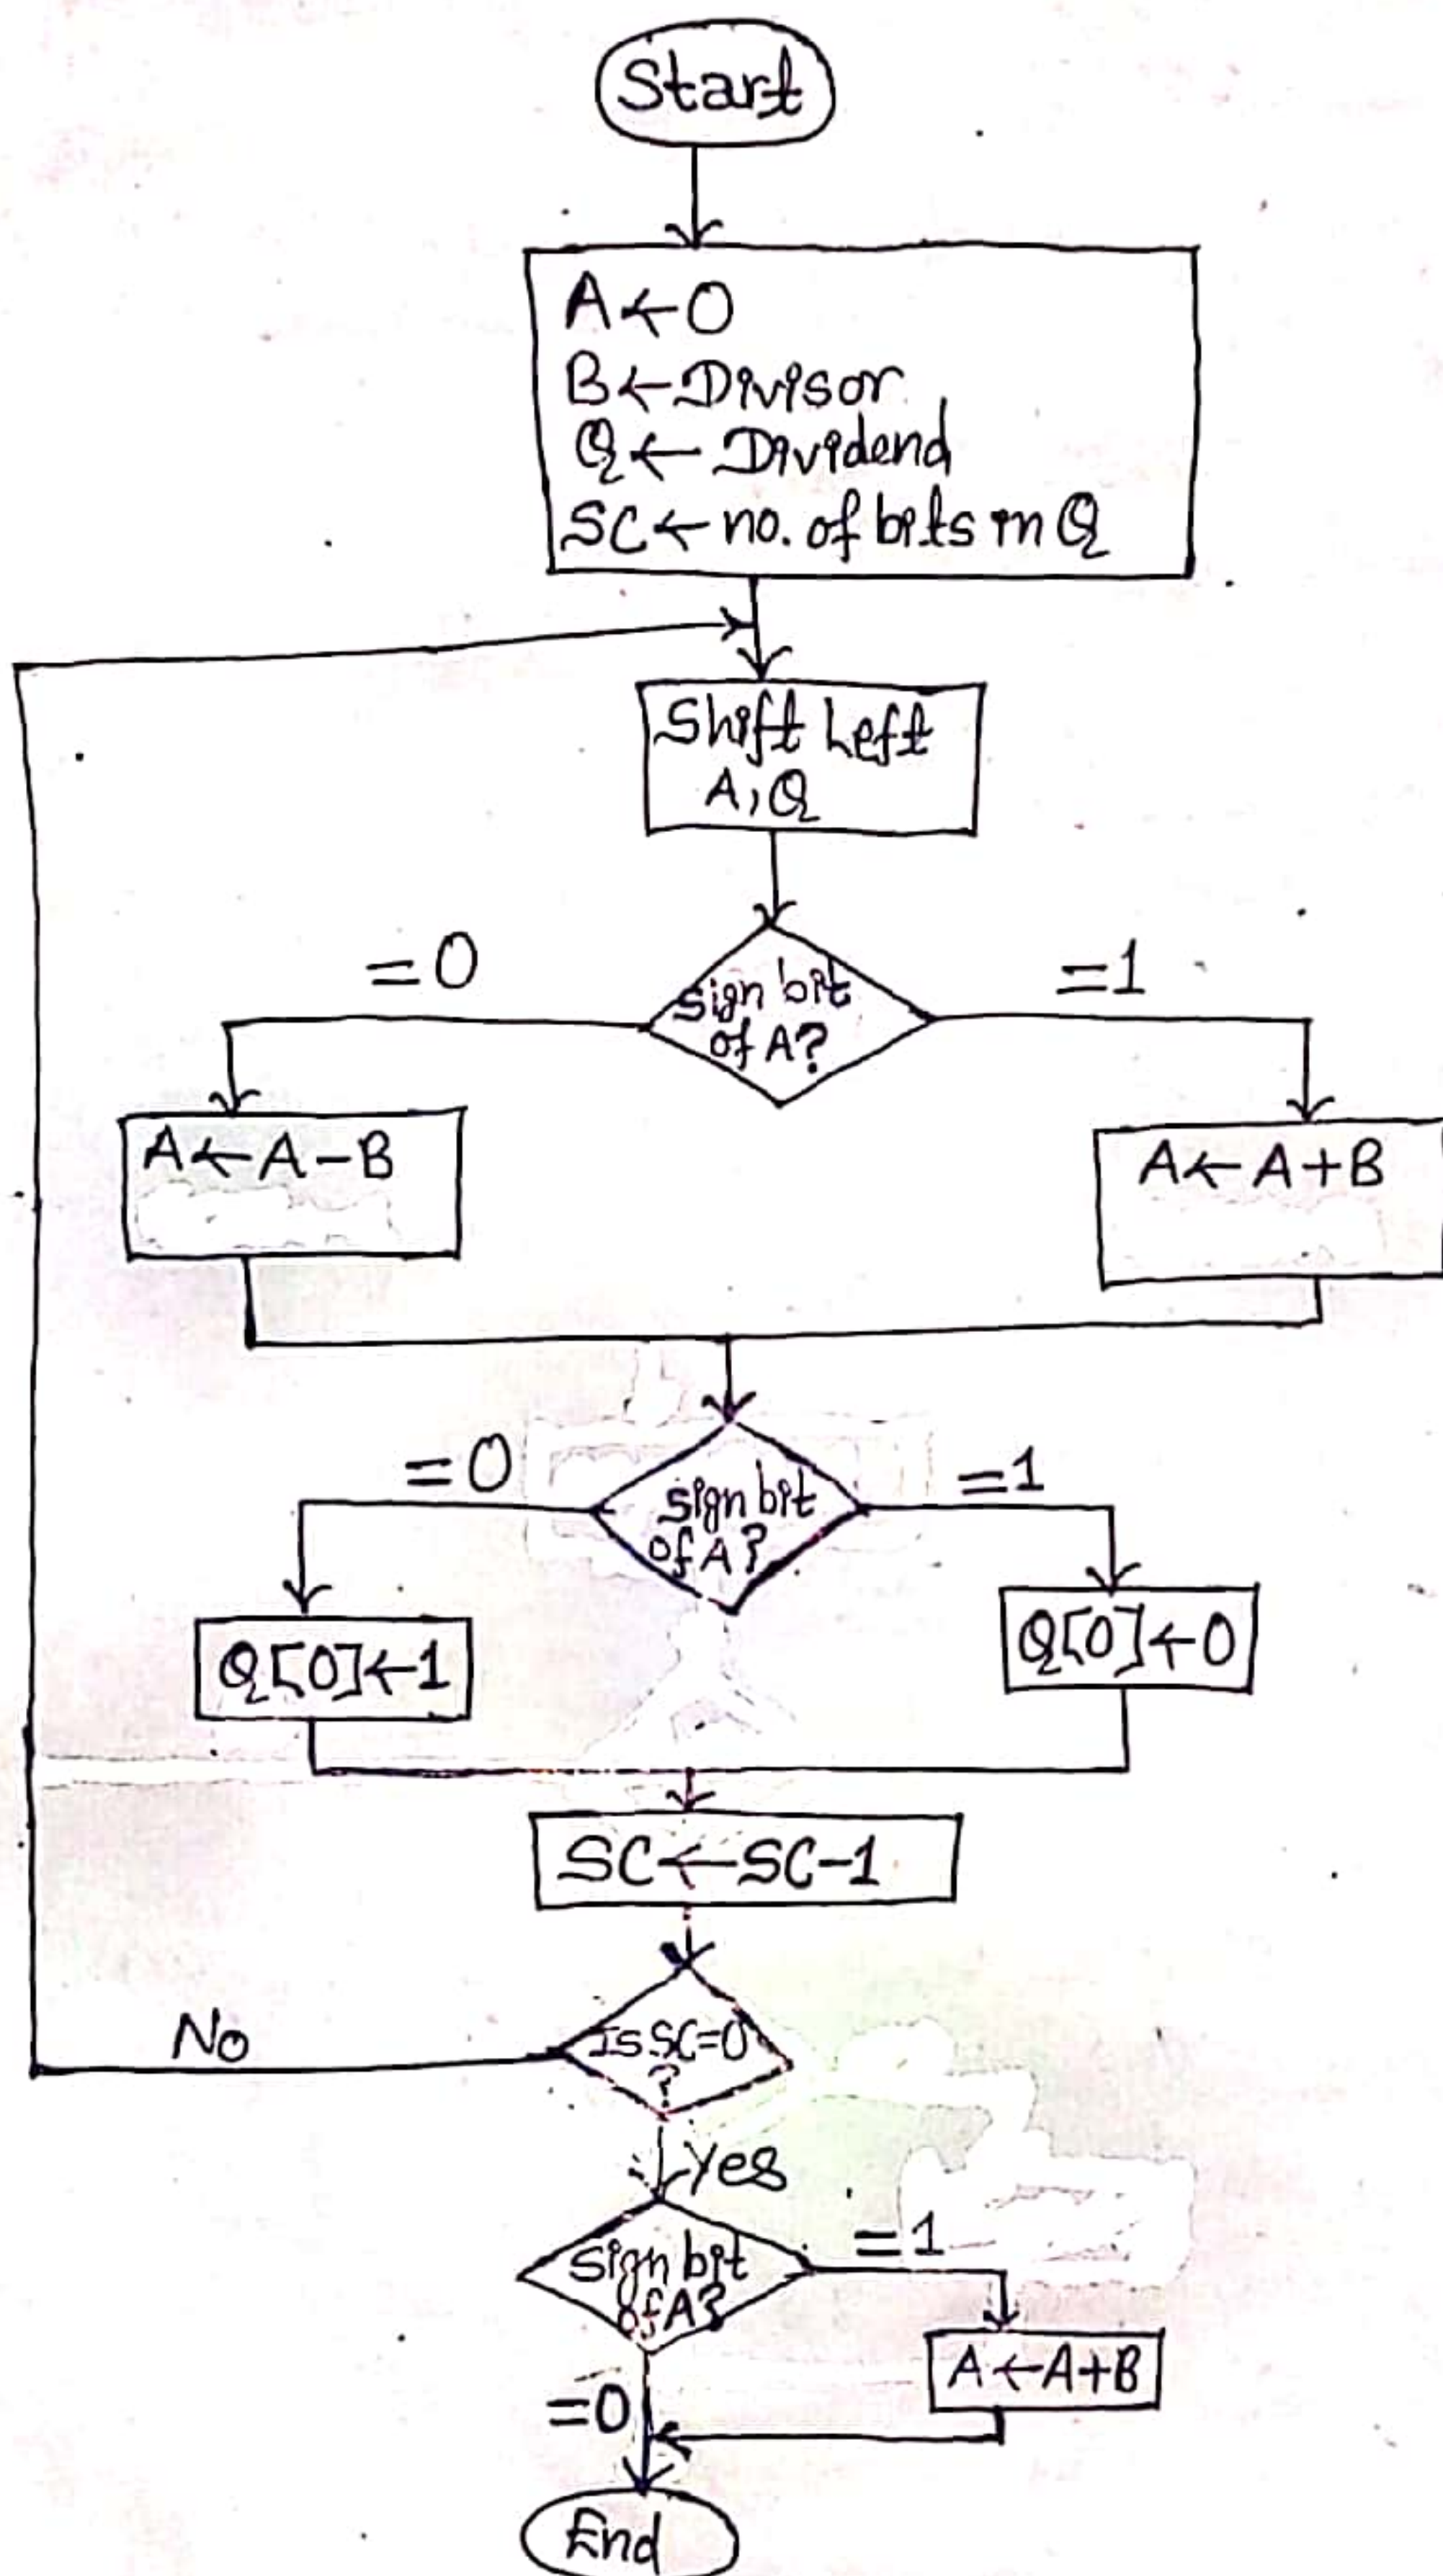 Start
A←0
B←Divisor
Q←Dividend
SC←no. of bits in Q
Shift Left
A,Q
=0
=1
sign bit
of A?
A←A-B
A←A+B
=0
=1
sign bit
of A?
Q[0]←1
Q[0]←0
SC←SC-1
No
Is SC=0
?
Yes
=1
sign bit
of A?
A←A+B
=0
End